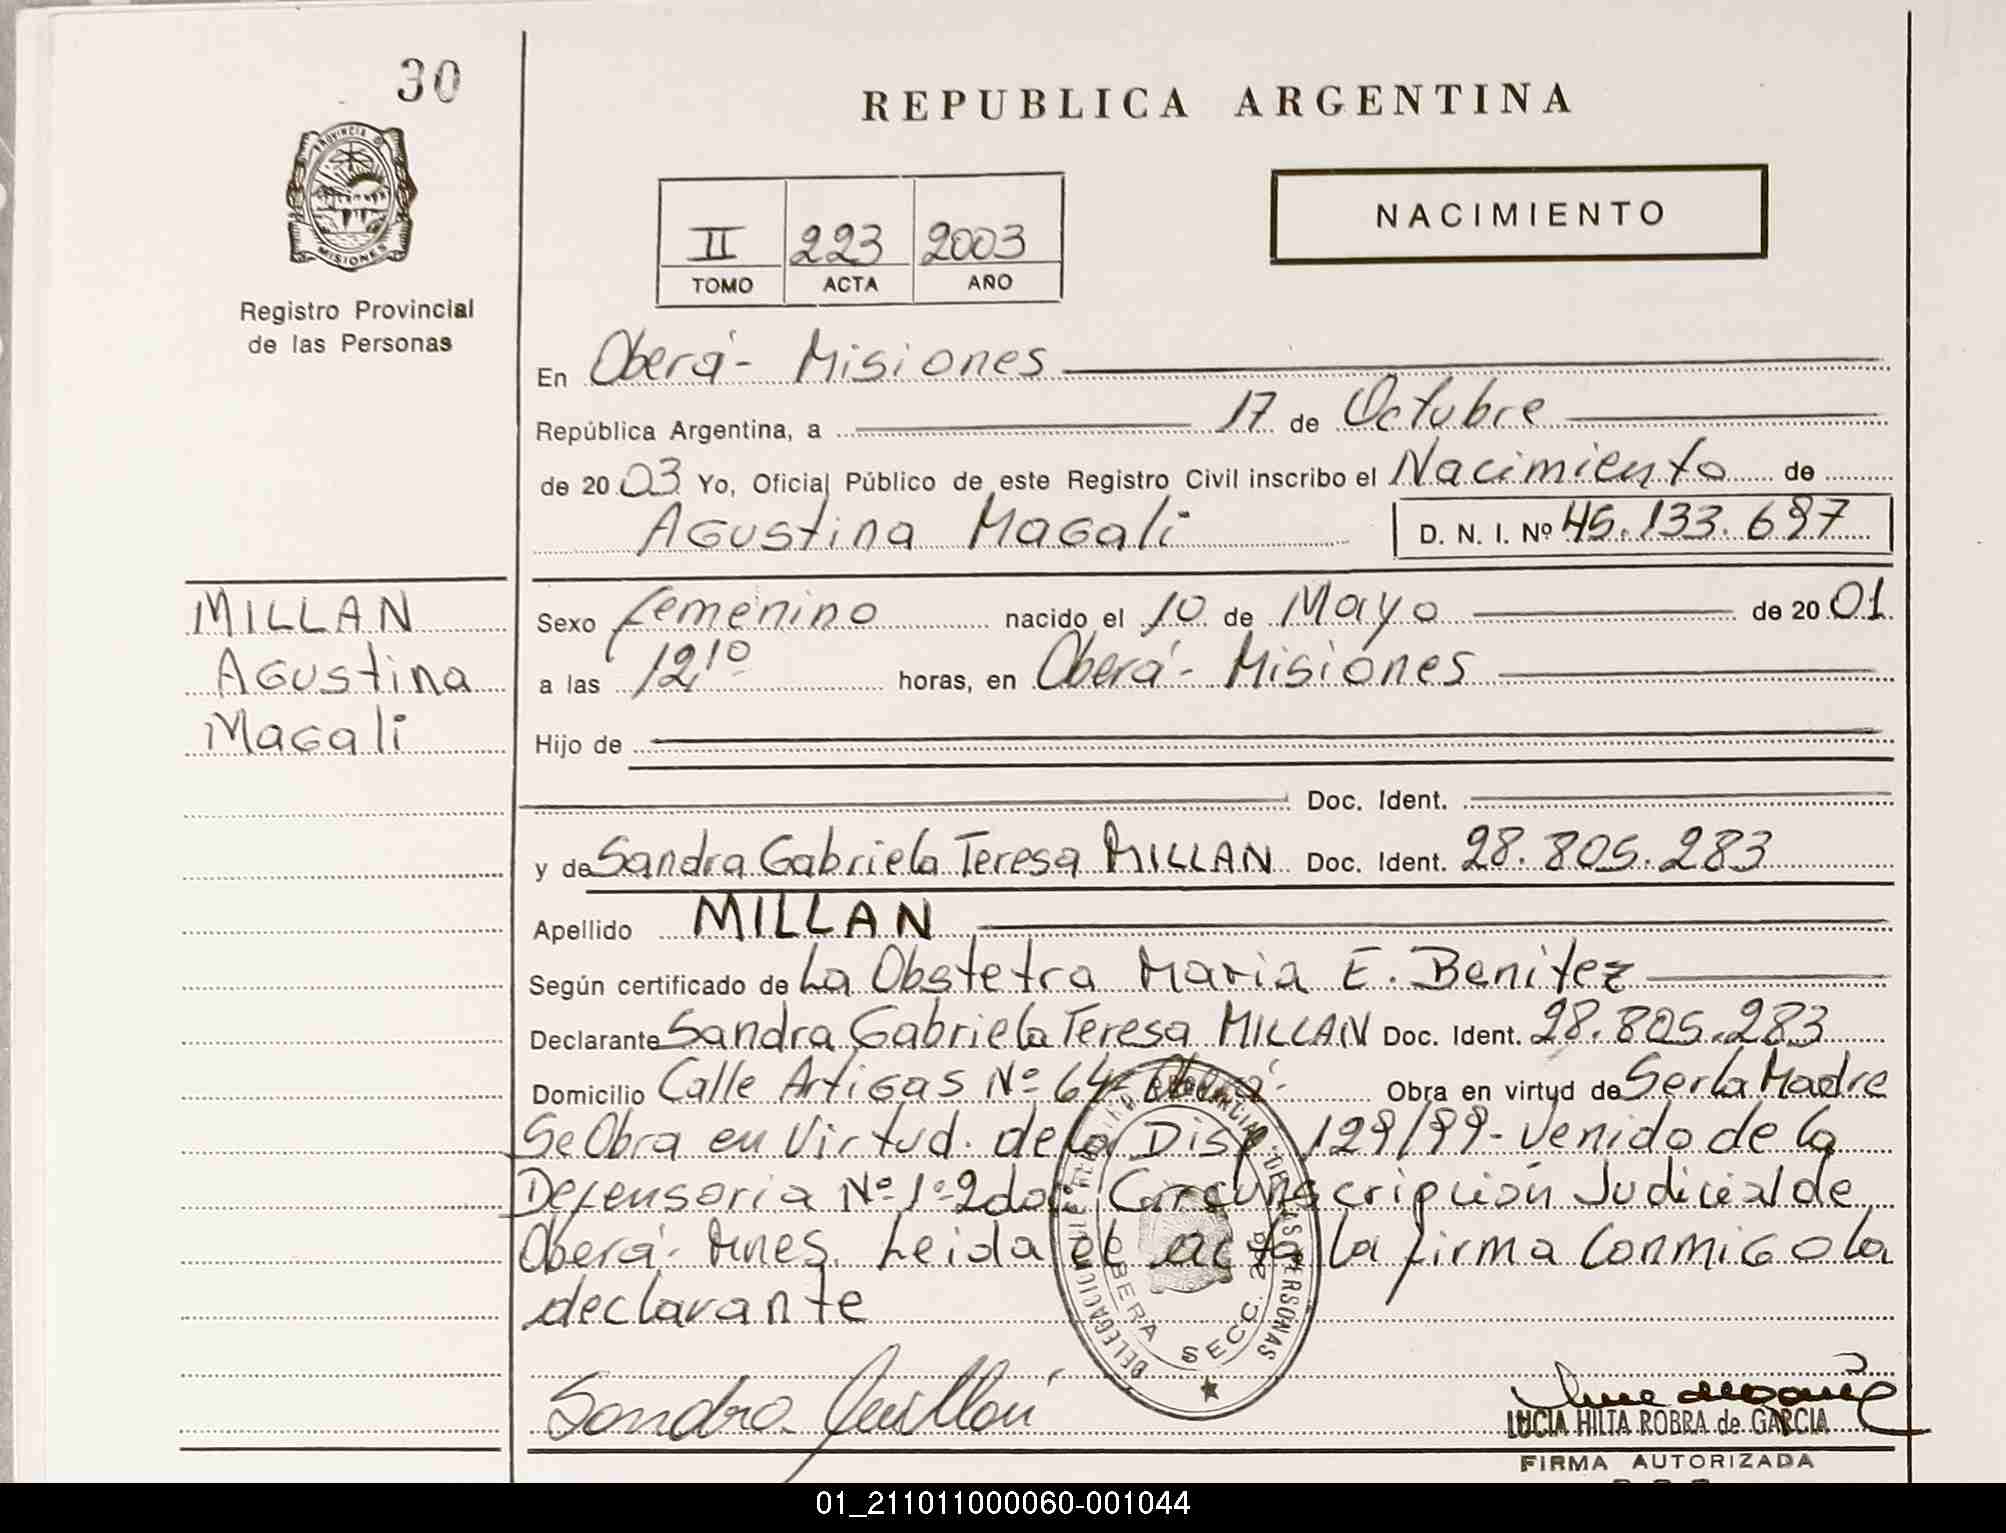 30
PROVINCIA DE
MISIONES
Registro Provincial
de las Personas
REPUBLICA ARGENTINA
II 223 2003
TOMO ACTA AÑO
NACIMIENTO
En Oberá - Misiones
República Argentina, a 17 de Octubre
de 2003 Yo, Oficial Público de este Registro Civil inscribo el Nacimiento de
Agustina Magali D. N. I. Nº 45.133.697
MILLAN
Agustina
Magali
Sexo femenino nacido el 10 de Mayo de 2001
a las 12,10 horas, en Oberá - Misiones
Hijo de
Doc. Ident.
y de Sandra Gabriela Teresa MILLAN Doc. Ident. 28.805.283
Apellido MILLAN
Según certificado de La Obstetra Maria E. Benitez
Declarante Sandra Gabriela Teresa MILLAN Doc. Ident. 28.805.283
Domicilio Calle Artigas Nº 64 - Oberá - Obra en virtud de Ser la Madre
Se Obra en Virtud. de la Disp. 129/99 - Venido de la
Defensoria Nº 1 - 2da Circunscripción Judicial de
Oberá - Mnes. Leida el acta la firma Conmigo la
declarante
DELEGACION PROVINCIAL DE LAS PERSONAS
OBERA SECC. 2da
Sandra Millán
LUCIA HILTA ROBRA de GARCIA
FIRMA AUTORIZADA
01_211011000060-001044